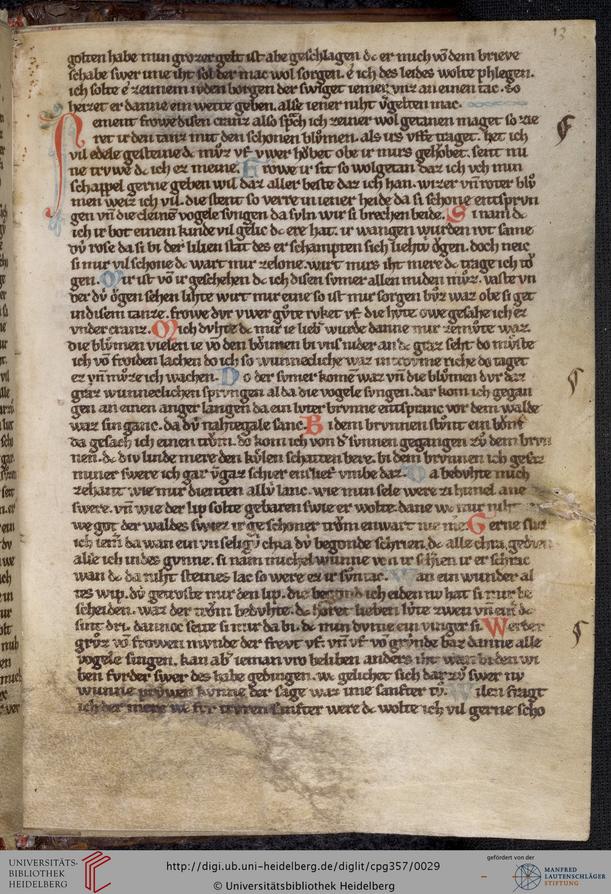 13
golten habe min grozer gelt ist abe geschlagen dc er mich vō dem brieve
schabe swer mie iht sol der mac wol sorgen. e ich des leides wolte phlegen.
ich solte e zeinem ivden borgen der swiget
herzet er danne ein wette geben. alse iener niht vgelten mac.
ement frowe disen cranz also spch ich zeiner wol getanen maget so zie
ret ir den tanz mit den schonen blvmen. als irs vffe traget. het ich
vil edele gesteine dc mvz vf vwer hobet obe ir mirs gelobet. sent mi
ne trvwe dc ich ez meine. Frowe ir sit so wolgetan daz ich vch min
schappel gerne geben wil daz aller beste daz ich han. wizer vn roter blv
men weiz ich vil. die stent so verre in iener heide da si schone entspryn
gen vn die cleinē vogele singen da svln wir si brechen beide. Si nam dc
ich ir bot einem kinde vil gelic dc ere hat. ir wangen wurden rot same
dv rose da si bi der lilien stat des er schampten sich liehtv ogen. doch neic
si mir vil schone dc wart mir zelone. wirt mirs iht mere dc trage ich to
gen. Mir ist vō ir geschehen dc ich disen svmer allen meiden mvz. vaste vn
der dv ogen sehen lihte wirt mir eine so ist mir sorgen bvz waz obe si get
in disem tanze. frowe dvr ywer gvte rvket vf die hvte owe gesahe ich ez
vnder cranz. Mich dvhte dc mir ie lieb wurde danne mir ze mvte waz.
die blvmen vielen ie vō den bōumen bi vns nider an dc graz seht do mvste
ich vō froiden lachen do ich so wunnecliche waz in trovme riche do taget
ez vn mvze ich wachen. Do der svmer komē waz vn die blvmen dvr daz
graz wunneclichen sprvngen al da die vogele svngen. dar kom ich gegan
gen an einen anger langen da ein lvter brvnne entspranc vor dem walde
waz sin ganc. da dv nahtegale sanc. Bi dem brvnnen stvnt ein bōm
da gesach ich einen trōm. do kom ich von d' svnnen gegangen zv dem brvn
nen. dc div linde mere den kvlen schatten bere. bi dem brvnnen ich gesaz
miner swere ich gar vgaz schier entslief vmbe daz. Da bedvhte mich
zehant wie mir dienten allv lant. wie min sele were ze himel ane
swere. vn wie der lip solte gebaren swie er wolte. dane
we got der waldes swiez ir ge schoner trōm enwart nie me. Gerne slief
ich iem da wan ein vnseligv chra dv begonde schrien. dc alle chra
alse ich indes gvnne. si nam michel wunne von ir schrien ir er schrac
wan dc da niht steines lac so were ez ir svntac. Wan ein wunder al
tes wip. dv getroste mir den lip. die begond ich eiden nv hat si mir be
scheiden. waz der trōm bedvhte. dc horet lieben lvte zwen vn ein dc
sint dri. dannoc seite si mir da bi. dc min dvme ein vinger si. Werder
grvz vō frowen mvnde der frevt vf. vn vf vō grvnde baz danne alle
vogele singen. kan ab' ieman vro beliben anders iht wan bi den wi
ben fvrder swer des habe gedingen. wc gelichet sich dar zv swer nv
wunne prvwen kvnne der sage waz ime sanfter tv. Wilen fragt
ich der mere wc fvr trvren sanfter were dc wolte ich vil gerne scho
UNIVERSITÄTS-
BIBLIOTHEK
HEIDELBERG
http://digi.ub.uni-heidelberg.de/diglit/cpg357/0029
© Universitätsbibliothek Heidelberg
gefördert von der
MANFRED
LAUTENSCHLÄGER
STIFTUNG